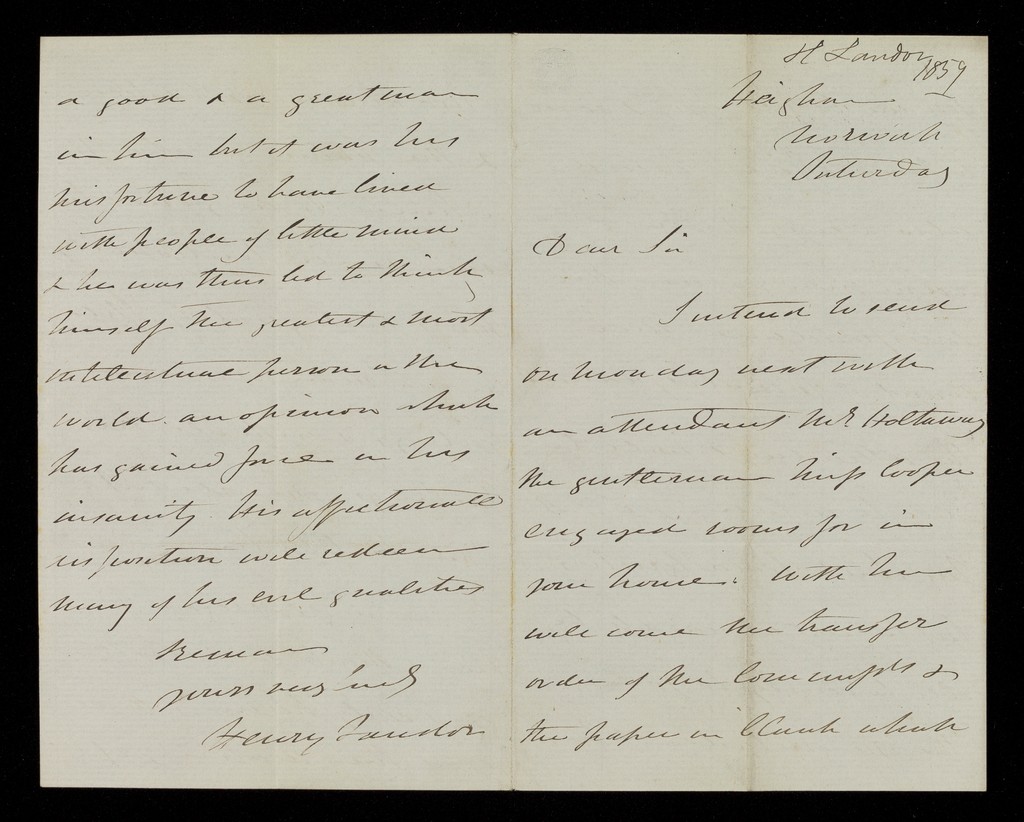 H Landor
1859
Heigham
Norwich
Saturday
Dear Sir
I intend to send
on monday next with
an attendant Mr. Holtaway
the gentleman Miss Cooper
engaged rooms for in
your house. With him
will come the transfer
order of the Commiss:rs &
the paper in blank which
a good & a great man
in him but it was his
misfortune to have lived
with people of little mind
& he was thus led to think
himself the greatest & most
intellectual person in the
world. an opinion which
has gained force in his
insanity. His affectionate
disposition will redeem
many of his evil qualities
Remain
yours very truly
Henry Landor